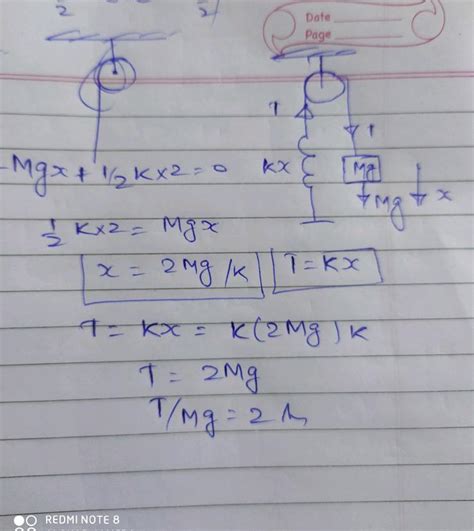 1/2 1/2
Date
Page
T T
KX Mg
Mg x
-Mgx + 1/2 Kx2 = 0
1/2 Kx2 = Mgx
x = 2Mg/K T = Kx
T = Kx = K(2Mg)K
T = 2Mg
T/Mg = 2
REDMI NOTE 8